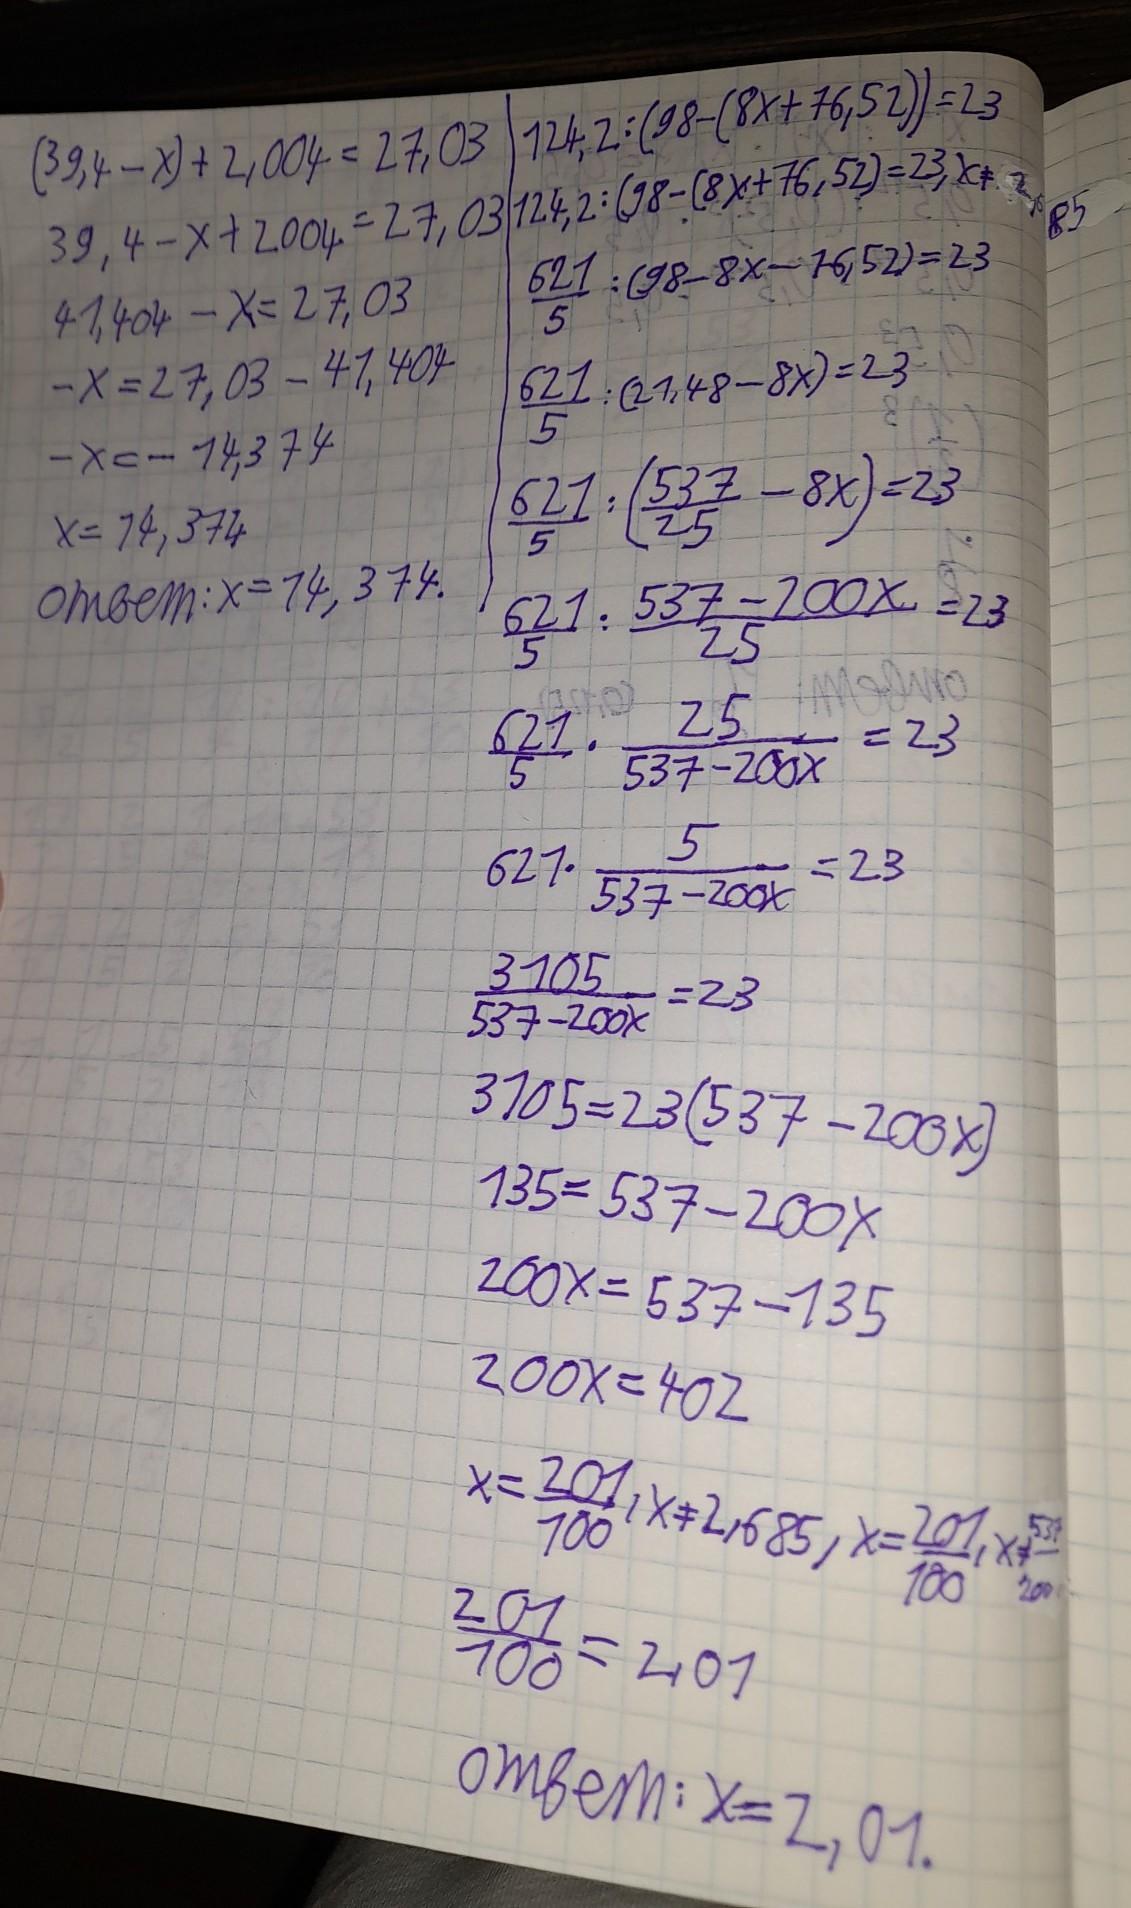 (39,4-x)+2,004=27,03
39,4-x+2004=27,03
41,404-x=27,03
-x=27,03-41,404
-x=-14,374
x=14,374
ответ:x=14,374.
124,2:(98-(8x+76,52))=23
124,2:(98-(8x+76,52)=23,x≠
85
621/5:(98-8x-76,52)=23
621/5:(21,48-8x)=23
621/5:(537/25-8x)=23
621/5:(537-200x)/25=23
621/5·25/(537-200x)=23
621·5/(537-200x)=23
3105/(537-200x)=23
3105=23(537-200x)
135=537-200x
200x=537-135
200x=402
x=201/100,x≠2,685,x=201/100,x≠537/200
201/100=2,01
ответ:x=2,01.